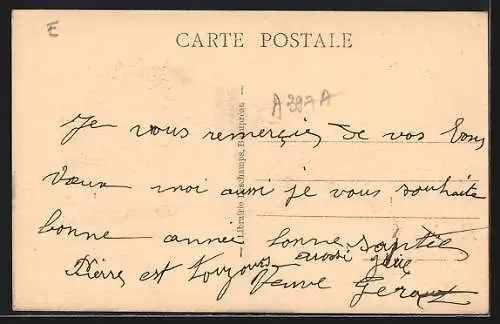 E
CARTE POSTALE
A 297 A
Librairie Deschamps, Beaupréau
Je vous remercie de vos bons
vœux moi aussi je vous souhaite
bonne année bonne santée
Pierre est toujours aussi
Veuve